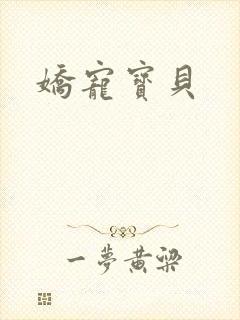 嬌寵寶貝
一夢黃粱